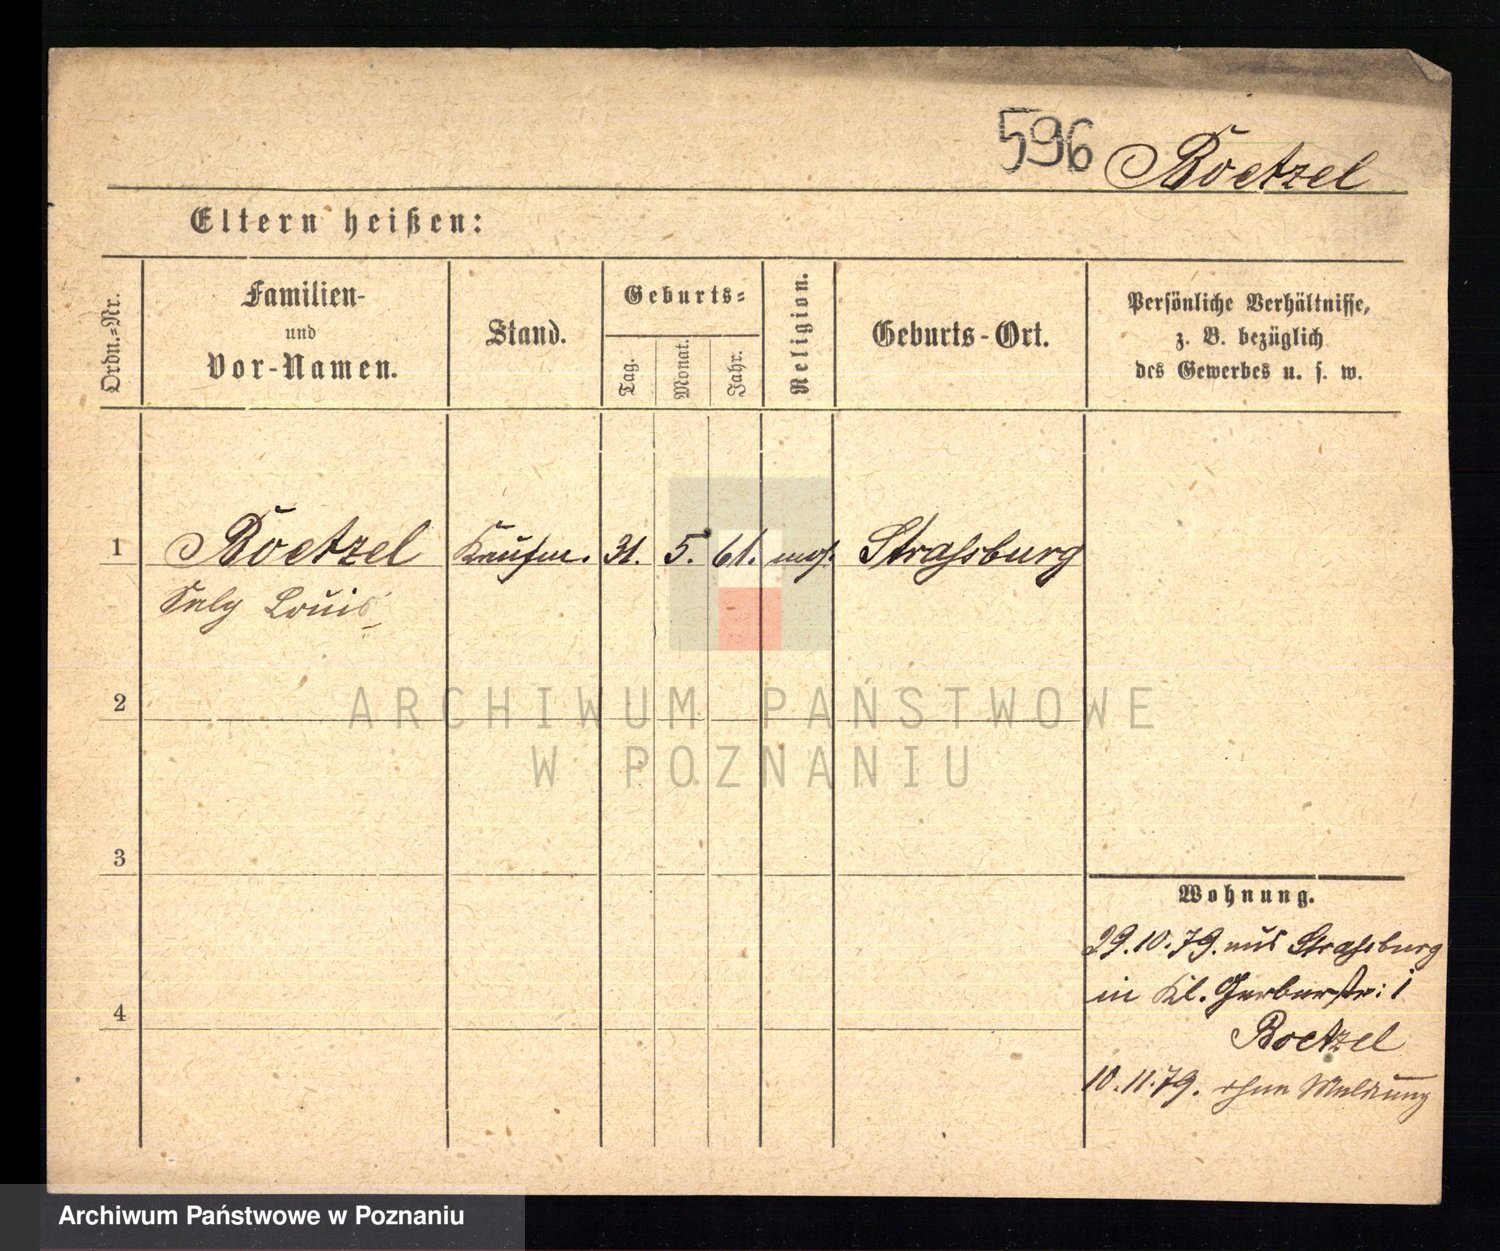 596 Boetzel
Eltern heißen:
Ordn.-Nr.
Familien-
und
Vor-Namen.
Stand.
Geburts-
Tag.
Monat.
Jahr.
Religion.
Geburts-Ort.
Persönliche Verhältnisse,
z. B. bezüglich
des Gewerbes u. s. w.
1 Boetzel Kaufm. 31. 5. 61. mos. Strassburg
Saly Louis
2
ARCHIWUM PAŃSTWOWE
W POZNANIU
3
Wohnung.
29.10.79. aus Strassburg
in Kl. Gerberstr: 1
4
Boetzel
10.11.79. ohne Meldung
Archiwum Państwowe w Poznaniu